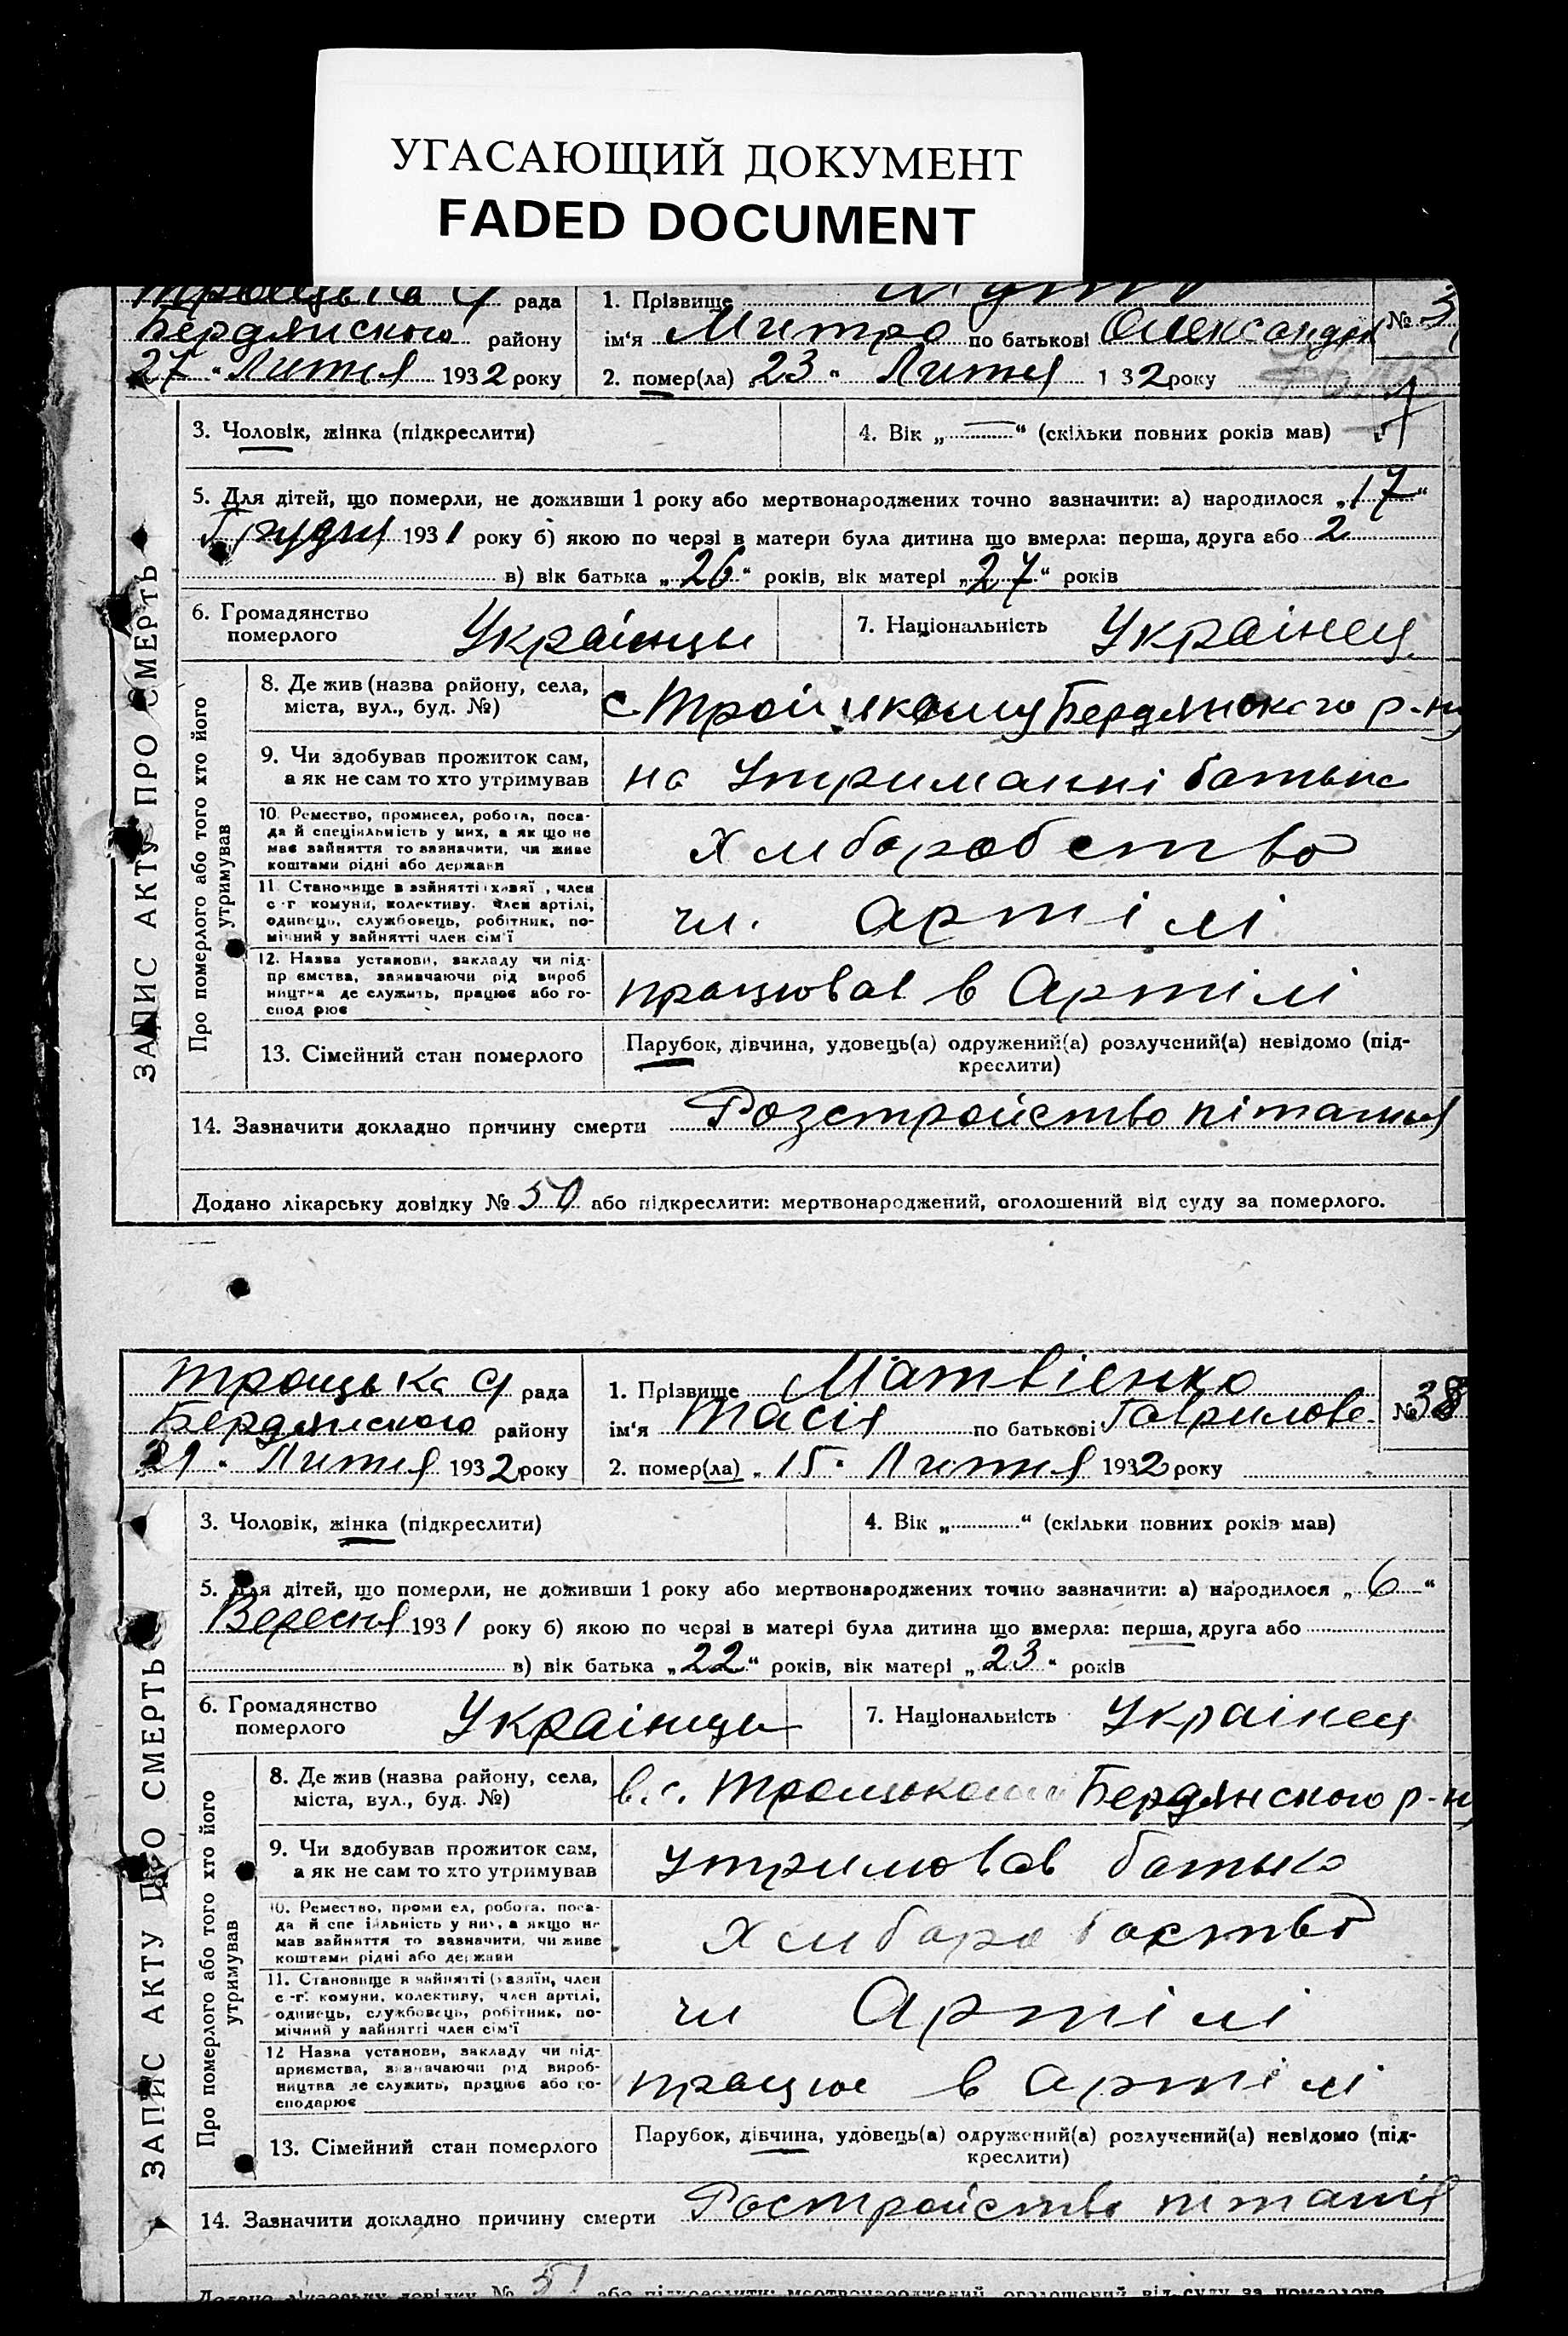 УГАСАЮЩИЙ ДОКУМЕНТ
FADED DOCUMENT
рада
1. Прізвище
№ 3
Бердянского району
ім'я Митро по батькові Олександр
27 " Лютня 1932 року
2. помер(ла) „ 23 " Лютня 1 32 року
3. Чоловік, жінка (підкреслити)
4. Вік „ — " (скільки повних років мав)
5. Для дітей, що померли, не доживши 1 року або мертвонароджених точно зазначити: а) народилося „ 17 "
Грудня 1931 року б) якою по черзі в матери була дитина що вмерла: перша, друга або 2
в) вік батька „ 26 " років, вік матері „ 27 " років
6. Громадянство
померлого
Українцы
7. Національність
Украінец
ЗАПИС АКТУ ПРО СМЕРТЬ
Про померлого або того хто його
утримував
8. Де жив (назва району, села,
міста, вул., буд. №)
с. Бердянского р-ну
9. Чи здобував прожиток сам,
а як не сам то хто утримував
на утриманні батька
10. Ремество, промисел, робота, поса-
да й спеціяльність у них, а як що не
має зайняття то зазначити, чи живе
коштами рідні або держави
Хлиборобство
11. Становище в зайнятті , член
с-г комуни, колективу. член артілі,
одинець, службовець, робітник, по-
мічний у зайнятті член сім'ї
чл. артілі
12. Назва установи, закладу чи під-
приємства, зазначаючи рід вироб
ництва де служить, працює або го-
сподарює
працював в Артілі
13. Сімейний стан померлого
Парубок, дівчина, удовець(а) одружений(а) розлучений(а) невідомо (під-
креслити)
14. Зазначити докладно причину смерти Розстройство пітання
Додано лікарську довідку № 50 або підкреслити: мертвонароджений, оголошений від суду за померлого.
Троцька С/ рада
1. Прізвище Матвієнко
№ 38
Бердянского району
ім'я Тасія по батькові Гаврилове
" Лютня 1932 року
2. помер(ла) „ 15 " Лютня 1932 року
3. Чоловік, жінка (підкреслити)
4. Вік „ " (скільки повних років мав)
5. Для дітей, що померли, не доживши 1 року або мертвонароджених точно зазначити: а) народилося „ 6 "
Вересня 1931 року б) якою по черзі в матері була дитина що вмерла: перша, друга або
в) вік батька „ 22 " років, вік матері „ 23 " років
6. Громадянство
померлого
Украінцы
7. Національність
Украінец
ЗАПИС АКТУ ПРО СМЕРТЬ
Про померлого або того хто його
утримував
8. Де жив (назва району, села,
міста, вул., буд. №)
в. с. Бердянского р-ну
9. Чи здобував прожиток сам,
а як не сам то хто утримував
утримовав батько
10. Ремество, промисел, робота, поса-
да й спеціяльність у них, а якщо не
мав зайняття то зазначити, чи живе
коштами рідні або держави
11. Становище в зайнятті (хазяїн, член
с-г. комуни, колективу, член артілі,
одинець, службовець, робітник, по-
мічний у зайнятті член сім'ї
чл Артілі
12 Назва установи, закладу чи під-
приємства, зазначаючи рід вироб-
ництва де служить, працює або го-
сподарює
працює в артілі
13. Сімейний стан померлого
Парубок, дівчина, удовець(а) одружений(а) розлучений(а) невідомо (під-
креслити)
14. Зазначити докладно причину смертиРостройство пітанія
Додано лікарську довідку № 51 або підкреслити: мертвонароджений, оголошений від суду за померлого